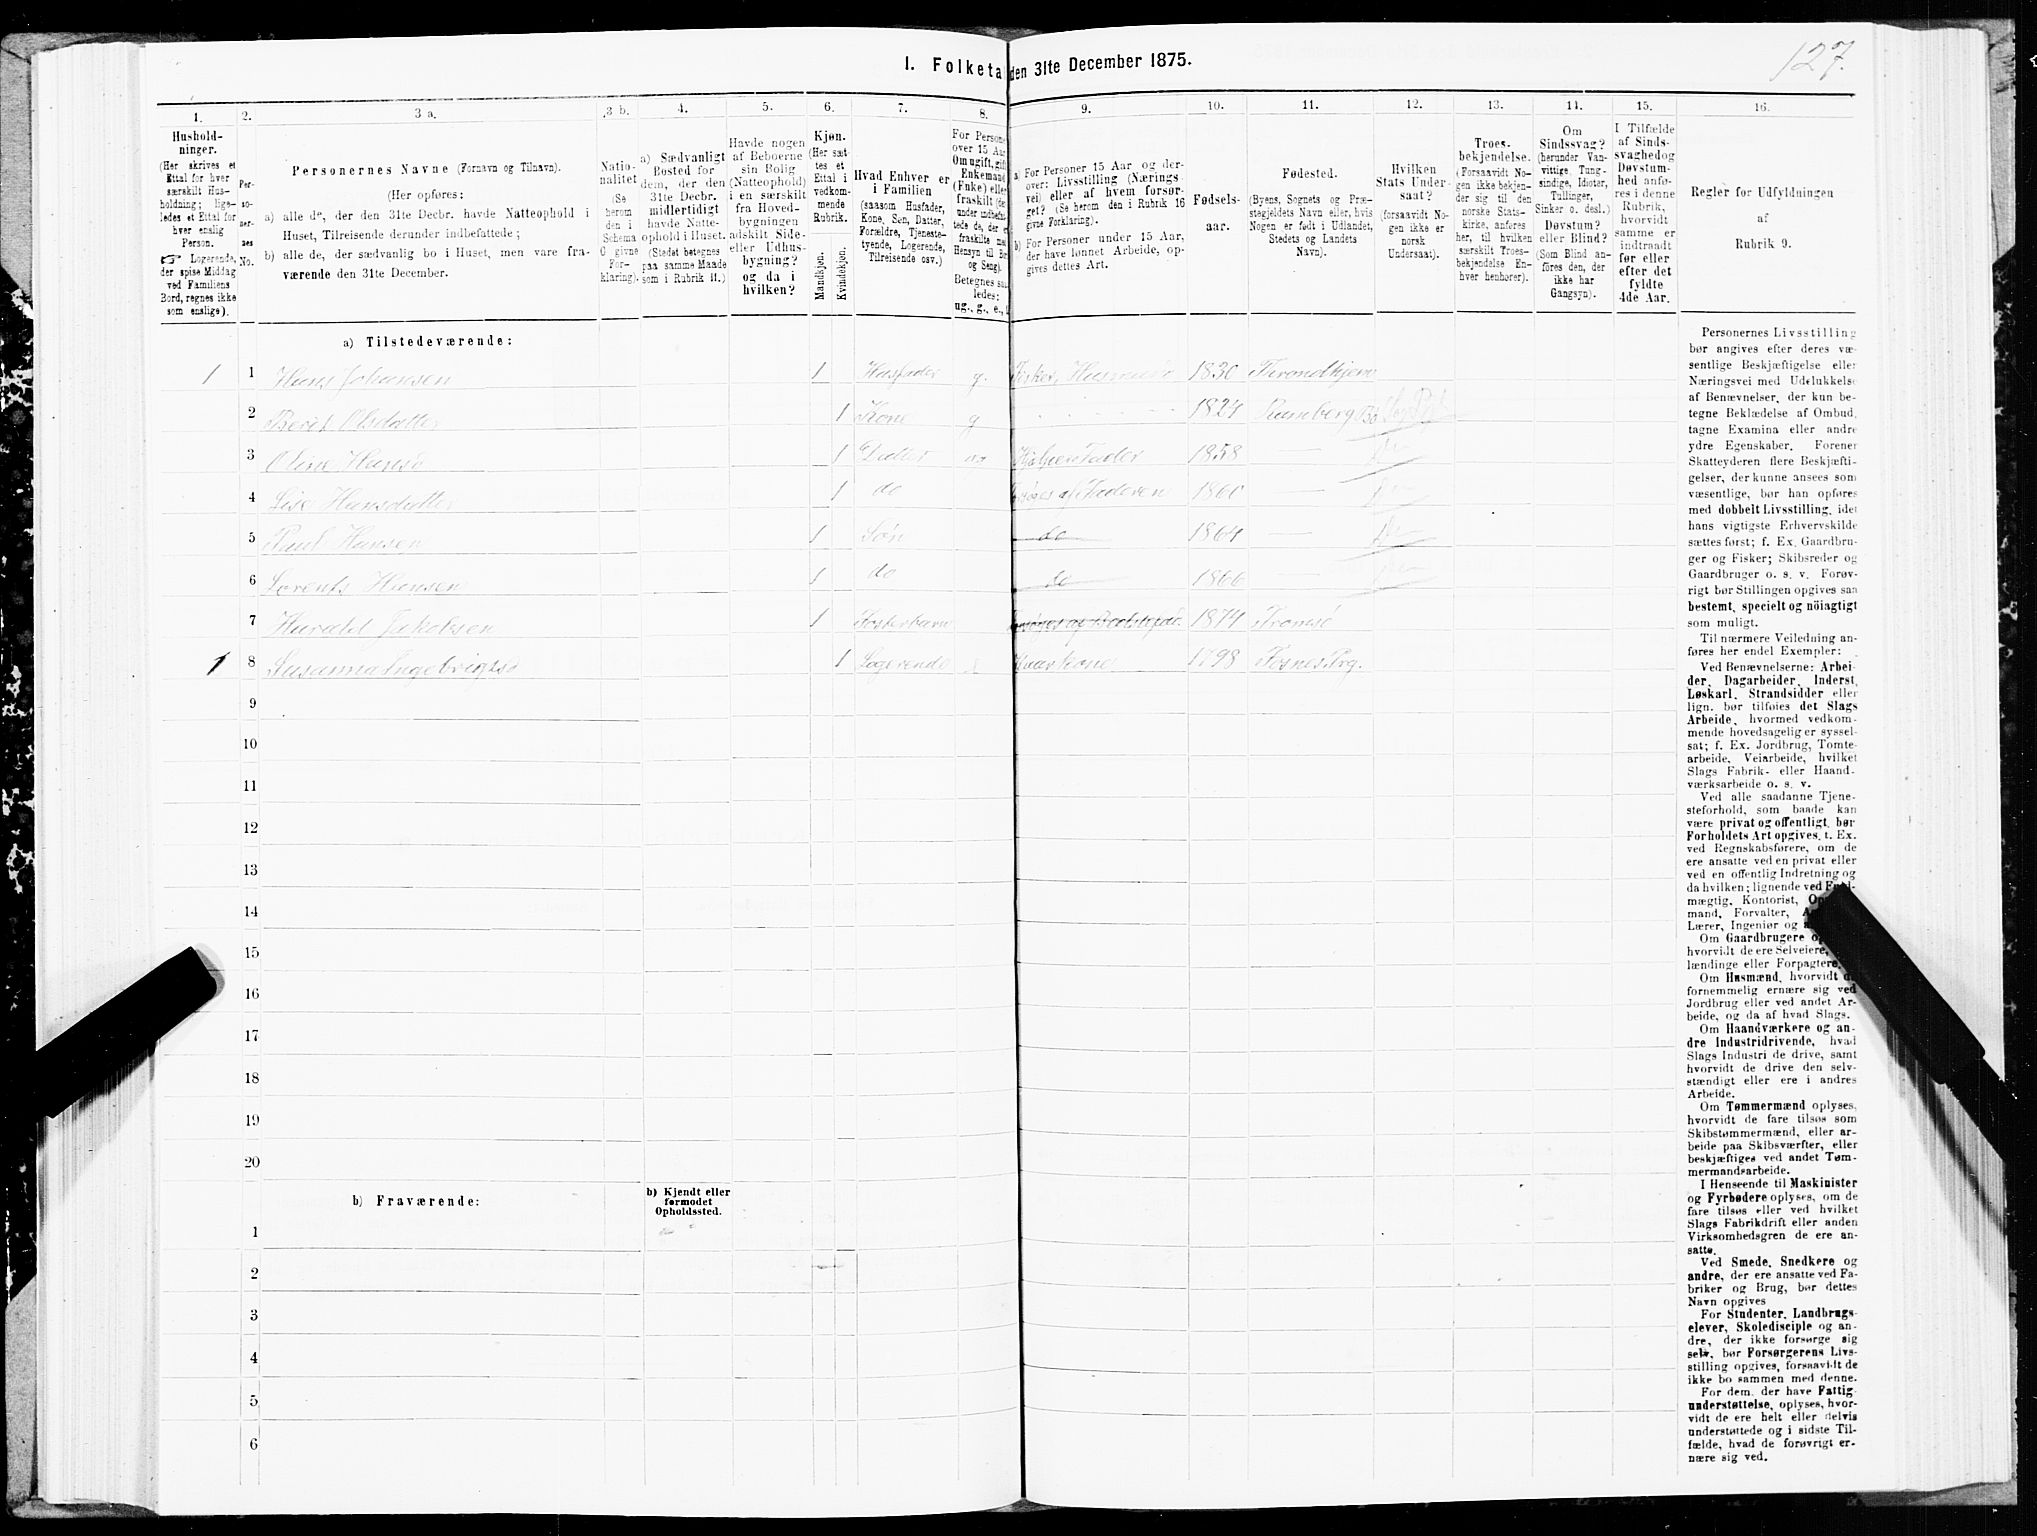 127.
I. Folketa den 31te December 1875.
1. 2. 3 a. 3 b. 4. 5. 6. 7. 8. 9. 10. 11. 12. 13. 14. 15. 16.
Hushold-
ninger.
(Her skrives et
Ettal for hver
særskilt Hus-
holdning; lige-
ledes et Ettal for
hver enslig
Person.
☞ Logerende,
der spise Middag
ved Familiens
Bord, regnes ikke
som enslige).
Per-
so-
ner-
nes
No.
Personernes Navne (Fornavn og Tilnavn).
(Her opføres:
a) alle de, der den 31te Decbr. havde Natteophold i
Huset, Tilreisende derunder indbefattede;
b) alle de, der sædvanlig bo i Huset, men vare fra-
værende den 31te December.
Natio-
nalitet
(Se
herom
den i
Schema
O givne
For-
klaring).
a) Sædvanligt
Bosted for
dem, der den
31te Decbr.
midlertidigt
havde Natte-
ophold i Huset.
(Stedet betegnes
paa samme Maade
som i Rubrik 11.)
Havde nogen
af Beboerne
sin Bolig
(Natteophold)
i en særskilt
fra Hoved-
bygningen
adskilt Side-
eller Udhus-
bygning?
og da i
hvilken?
Kjøn.
(Her sæt-
tes et
Ettal i
vedkom-
mende
Rubrik.
Mandkjøn.
Kvindekjøn.
Hvad Enhver er
i Familien
(saasom Husfader,
Kone, Søn, Datter,
Forældre, Tjeneste-
tyende, Logerende,
Tilreisende osv.)
For Persone
over 15 Aar
Om ugift, gift
Enkemand
(Enke) eller
fraskilt (de
under indbefat-
tede de, der e
fraskilte med
Hensyn til Bor
og Seng).
Betegnes saa
ledes:
ug., g., e.,
a) For Personer 15 Aar og der-
over: Livsstilling (Nærings-
vei) eller af hvem forsør-
get? (Se herom den i Rubrik 16
givne Forklaring).
b) For Personer under 15 Aar,
der have lønnet Arbeide, op-
gives dettes Art.
Fødsels-
aar.
Fødested.
(Byens, Sognets og Præ-
stegjeldets Navn eller, hvis
Nogen er født i Udlandet,
Stedets og Landets
Navn).
Hvilken
Stats Under-
saat?
(forsaavidt No-
gen ikke er
norsk
Undersaat).
Troes-
bekjendelse.
(Forsaavidt No-
gen ikke bekjen-
der sig til den
norske Stats-
Kirke, anføres
her, til hvilken
særskilt Troes-
bekjendelse En-
hver henhører).
Om
Sindssvag?
(herunder Van-
vittige, Tung-
sindige, Idioter,
Tullinger,
Sinker o. desl.)
Døvstum?
eller Blind?
(Som Blind an-
føres den, der
ikke har
Gangsyn).
I Tilfælde
af Sinds-
svaghed og
Døvstum-
hed anfø-
res i denne
Rubrik,
hvorvidt
samme er
indtraadt
før eller
efter det
fyldte
4de Aar.
Regler for Udfyldningen
af
Rubrik 9.
a) Tilstedeværende:
1 1 Hans Johansen 1 Husfader g. Fisker, Husmand 1830 Throndhjem
2 Berit Olsdatter 1 Kone g 1824 Ramberg
3 Oline Hansd 1 Datter ug Hjelper Fader 1858
4 Lise Hansdatter 1 do Forsørges af Faderen 1860
5 Paul Hansen 1 Søn do 1864
6 Lorents Hansen 1 do do 1866
7 Harald Jakobsen 1 Fosterbarn 1874 Tromsø
1 8 Susanna Ingebrigtsd 1 Logerende e 1798 Fosnes Prg.
9
10
11
12
13
14
15
16
17
18
19
20
b) Fraværende:
b) Kjendt eller
formodet
Opholdssted.
1
2
3
4
5
6
Personernes Livsstilling
bør angives efter deres væ-
sentlige Beskjæftigelse eller
Næringsvei med Udelukkelse
af Benævnelser, der kun be-
tegne Beklædelse af Ombud,
tagne Examina eller andre
ydre Egenskaber. Forener
Skatteyderen flere Beskjæfti-
gelser, der kunne ansees som
væsentlige, bør han opføres
med dobbelt Livsstilling, idet
hans vigtigste Erhvervskilde
sættes først; f. Ex. Gaardbru-
ger og Fisker; Skibsreder og
Gaardbruger o. s. v. Forøv-
rigt bør Stillingen opgives saa
bestemt, specielt og nöiagtigt
som muligt.
Til nærmere Veiledning an-
føres her endel Exempler:
Ved Benævnelserne: Arbei-
der, Dagarbeider, Inderst,
Løskarl, Strandsidder eller
lign. bør tilføies det Slags
Arbeide, hvormed vedkom-
mende hovedsagelig er syssel-
sat; f. Ex. Jordbrug, Tomte-
arbeide, Veiarbeide, hvilket
Slags Fabrik- eller Haand-
værksarbeide o. s. v.
Ved alle saadanne Tjene-
steforhold, som baade kan
være privat og offentligt, bør
Forholdets Art opgives, t. Ex.
ved Regnskabsførere, om de
ere ansatte ved en privat eller
ved en offentlig Indretning og
da hvilken; lignende ved Fuld-
mægtig, Kontorist, Op
mand, Forvalter, A
Lærer, Ingeniør og
Om Gaardbrugere o
hvorvidt de ere Selveiere,
lændinge eller Forpagtere.
Om Husmænd, hvorvidt de
fornemmelig ernære sig ved
Jordbrug eller ved andet Ar-
beide, og da af hvad Slags.
Om Haandværkere og an-
dre Industridrivende, hvad
Slags Industri de drive, samt
hvorvidt de drive den selv-
stændigt eller ere i andres
Arbeide.
Om Tømmermænd oplyses,
hvorvidt de fare tilsøs som
Skibstømmermænd, eller ar-
beide paa Skibsværfter, eller
beskjæftiges ved andet Tøm-
mermandsarbeide.
I Henseende til Maskinister
og Fyrbødere oplyses, om de
fare tilsøs eller ved hvilket
Slags Fabrikdrift eller anden
Virksomhedsgren de ere an-
satte.
Ved Smede, Snedkere og
andre, der ere ansatte ved Fa-
briker og Brug, bør dettes
Navn opgives
For Studenter, Landbrugs-
elever, Skoledisciple og an-
dre, der ikke forsørge sig
selv, bør Forsørgerens Livs-
stilling opgives, forsaavidt de
ikke bo sammen med denne.
For dem, der have Fattig-
understøttelse, oplyses, hvor-
vidt de ere helt eller delvis
understøttede og i sidste Til-
fælde, hvad de forøvrigt er-
nære sig ved.